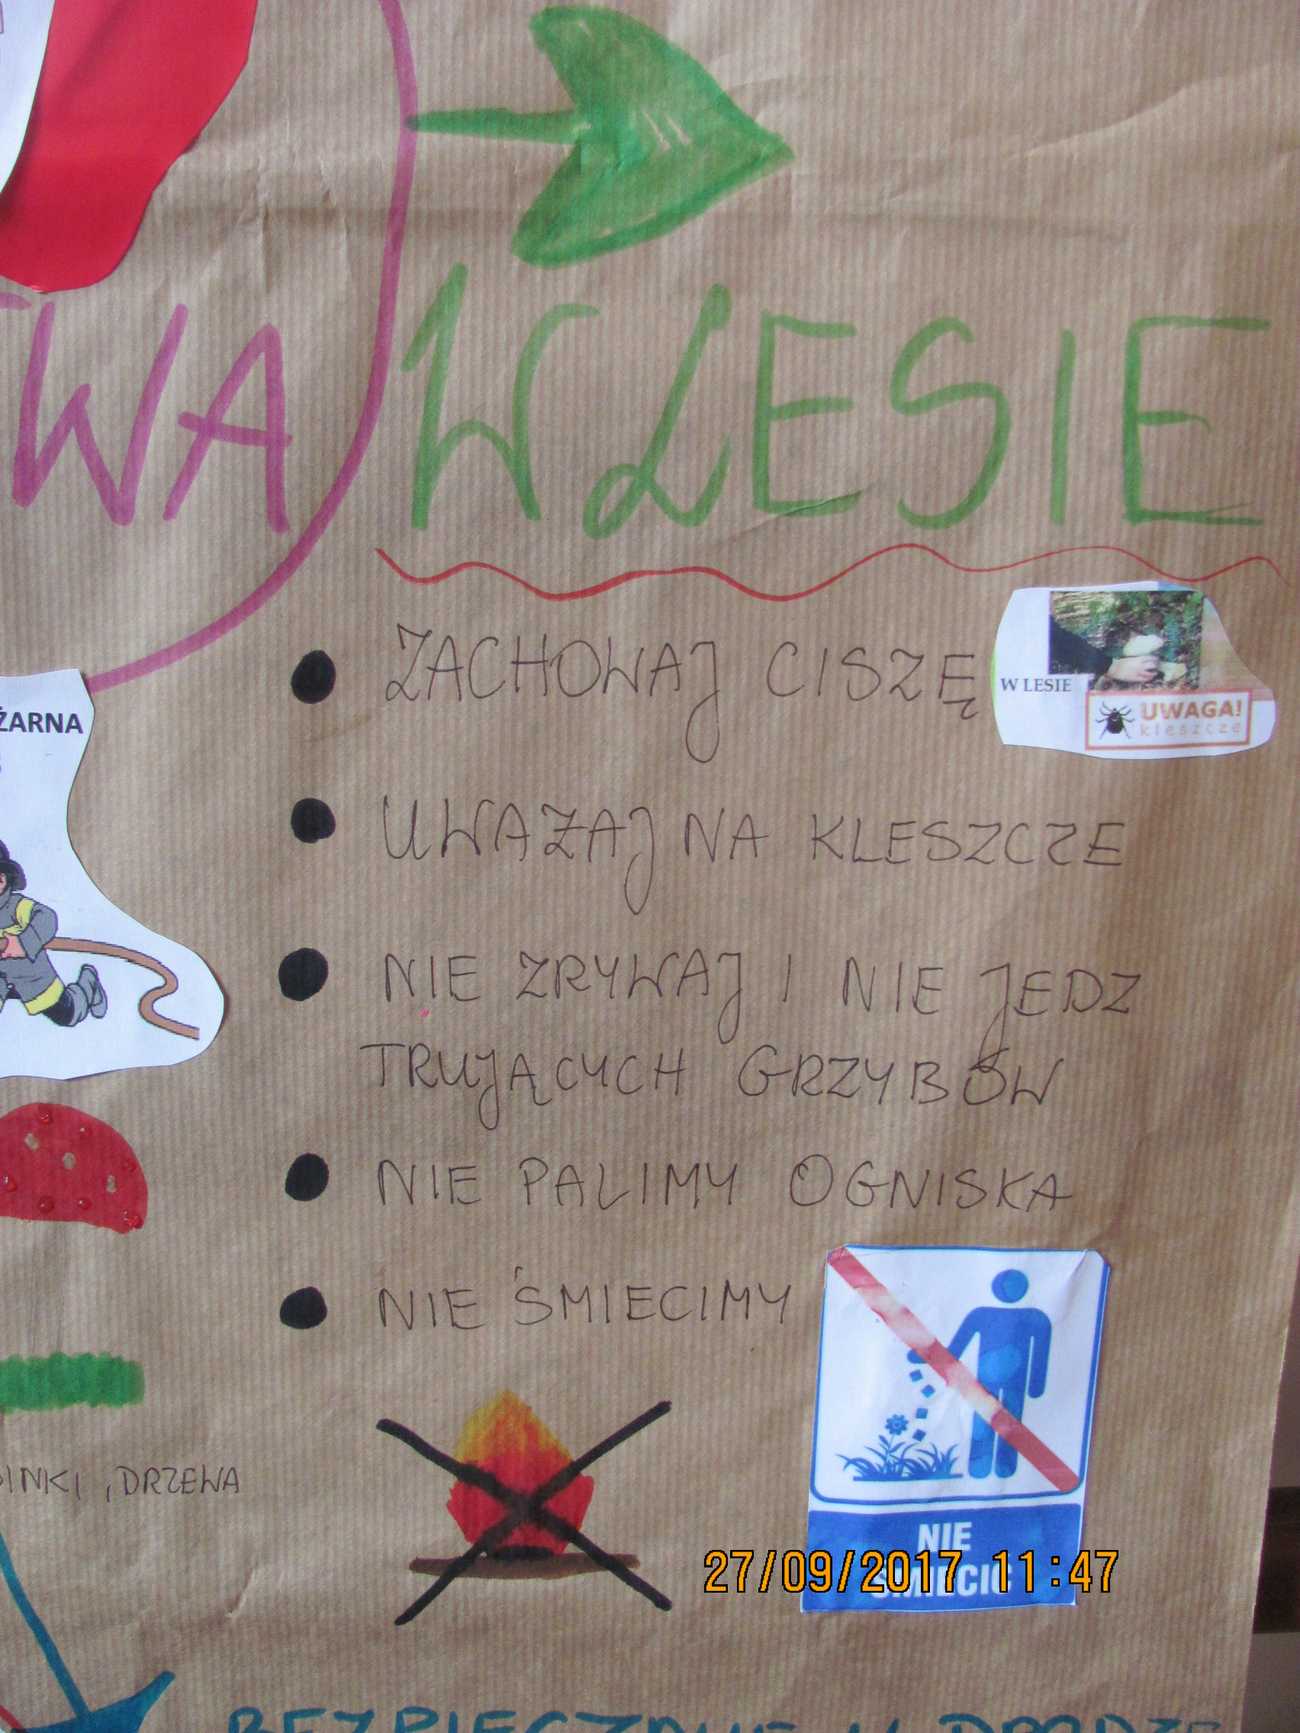 WA
W LESIE
ZACHOWAJ CISZĘ
W LESIE
UWAGA!
kleszcze
ŻARNA
UWAŻAJ NA KLESZCZE
NIE ZRYWAJ I NIE JEDZ
TRUJĄCYCH GRZYBÓW
NIE PALIMY OGNISKA
NIE ŚMIECIMY
INKI, DRZEWA
NIE
ŚMIECIĆ
27/09/2017 11:47
BEZPIECZNIE W DRODZE